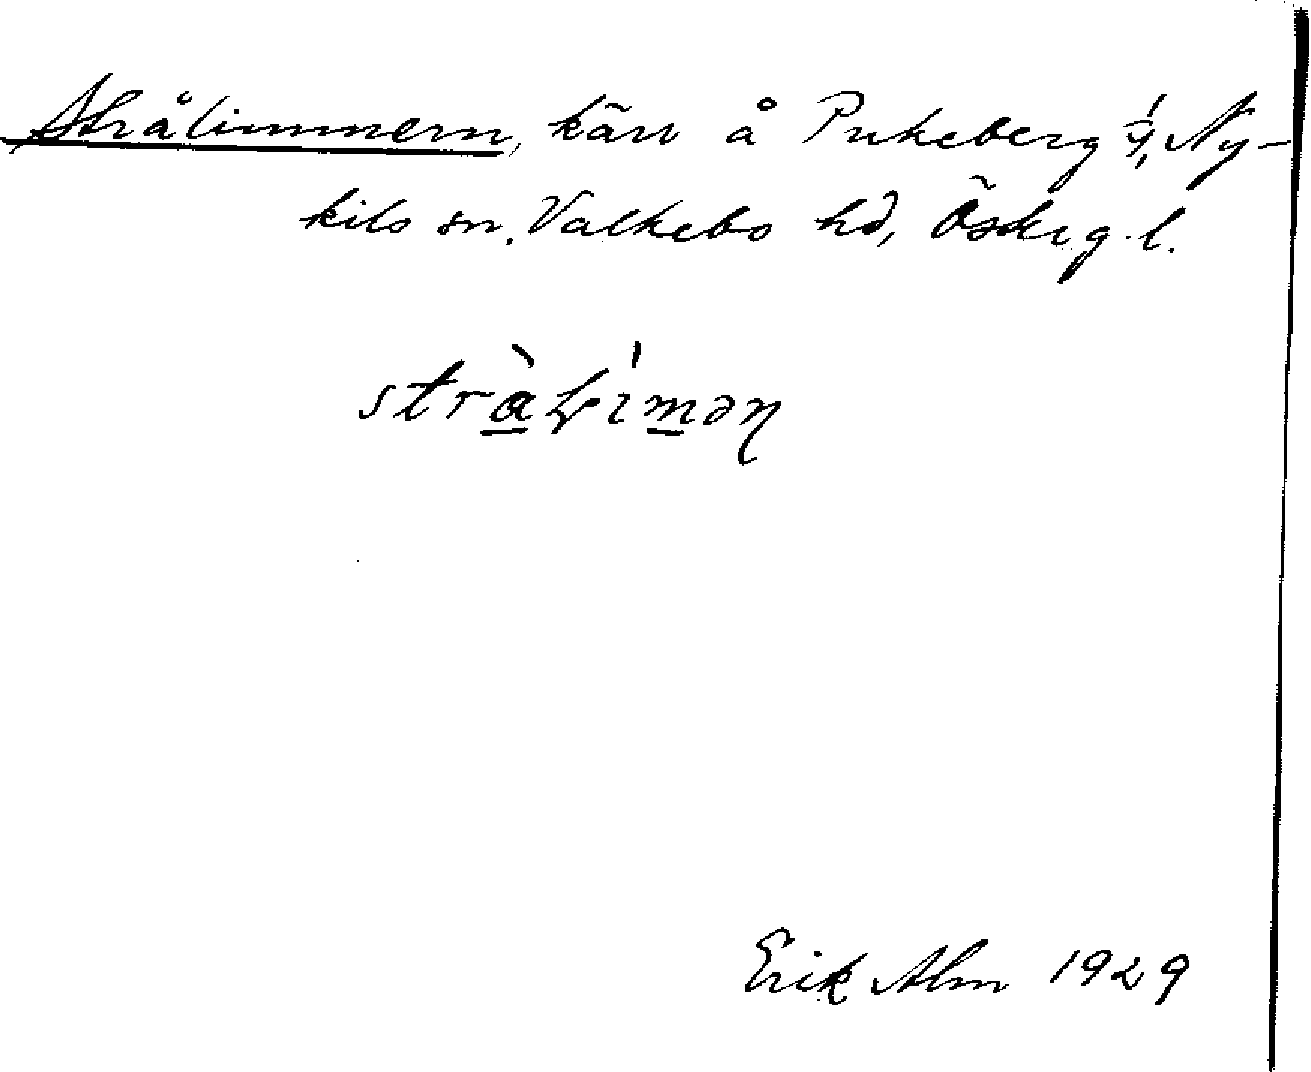 Strålimmern, kärr å Pukeberg 1/1, Ny-
kils sn. Valkebo hd, Östergl.
strὰlimən
Erik Alm 1929